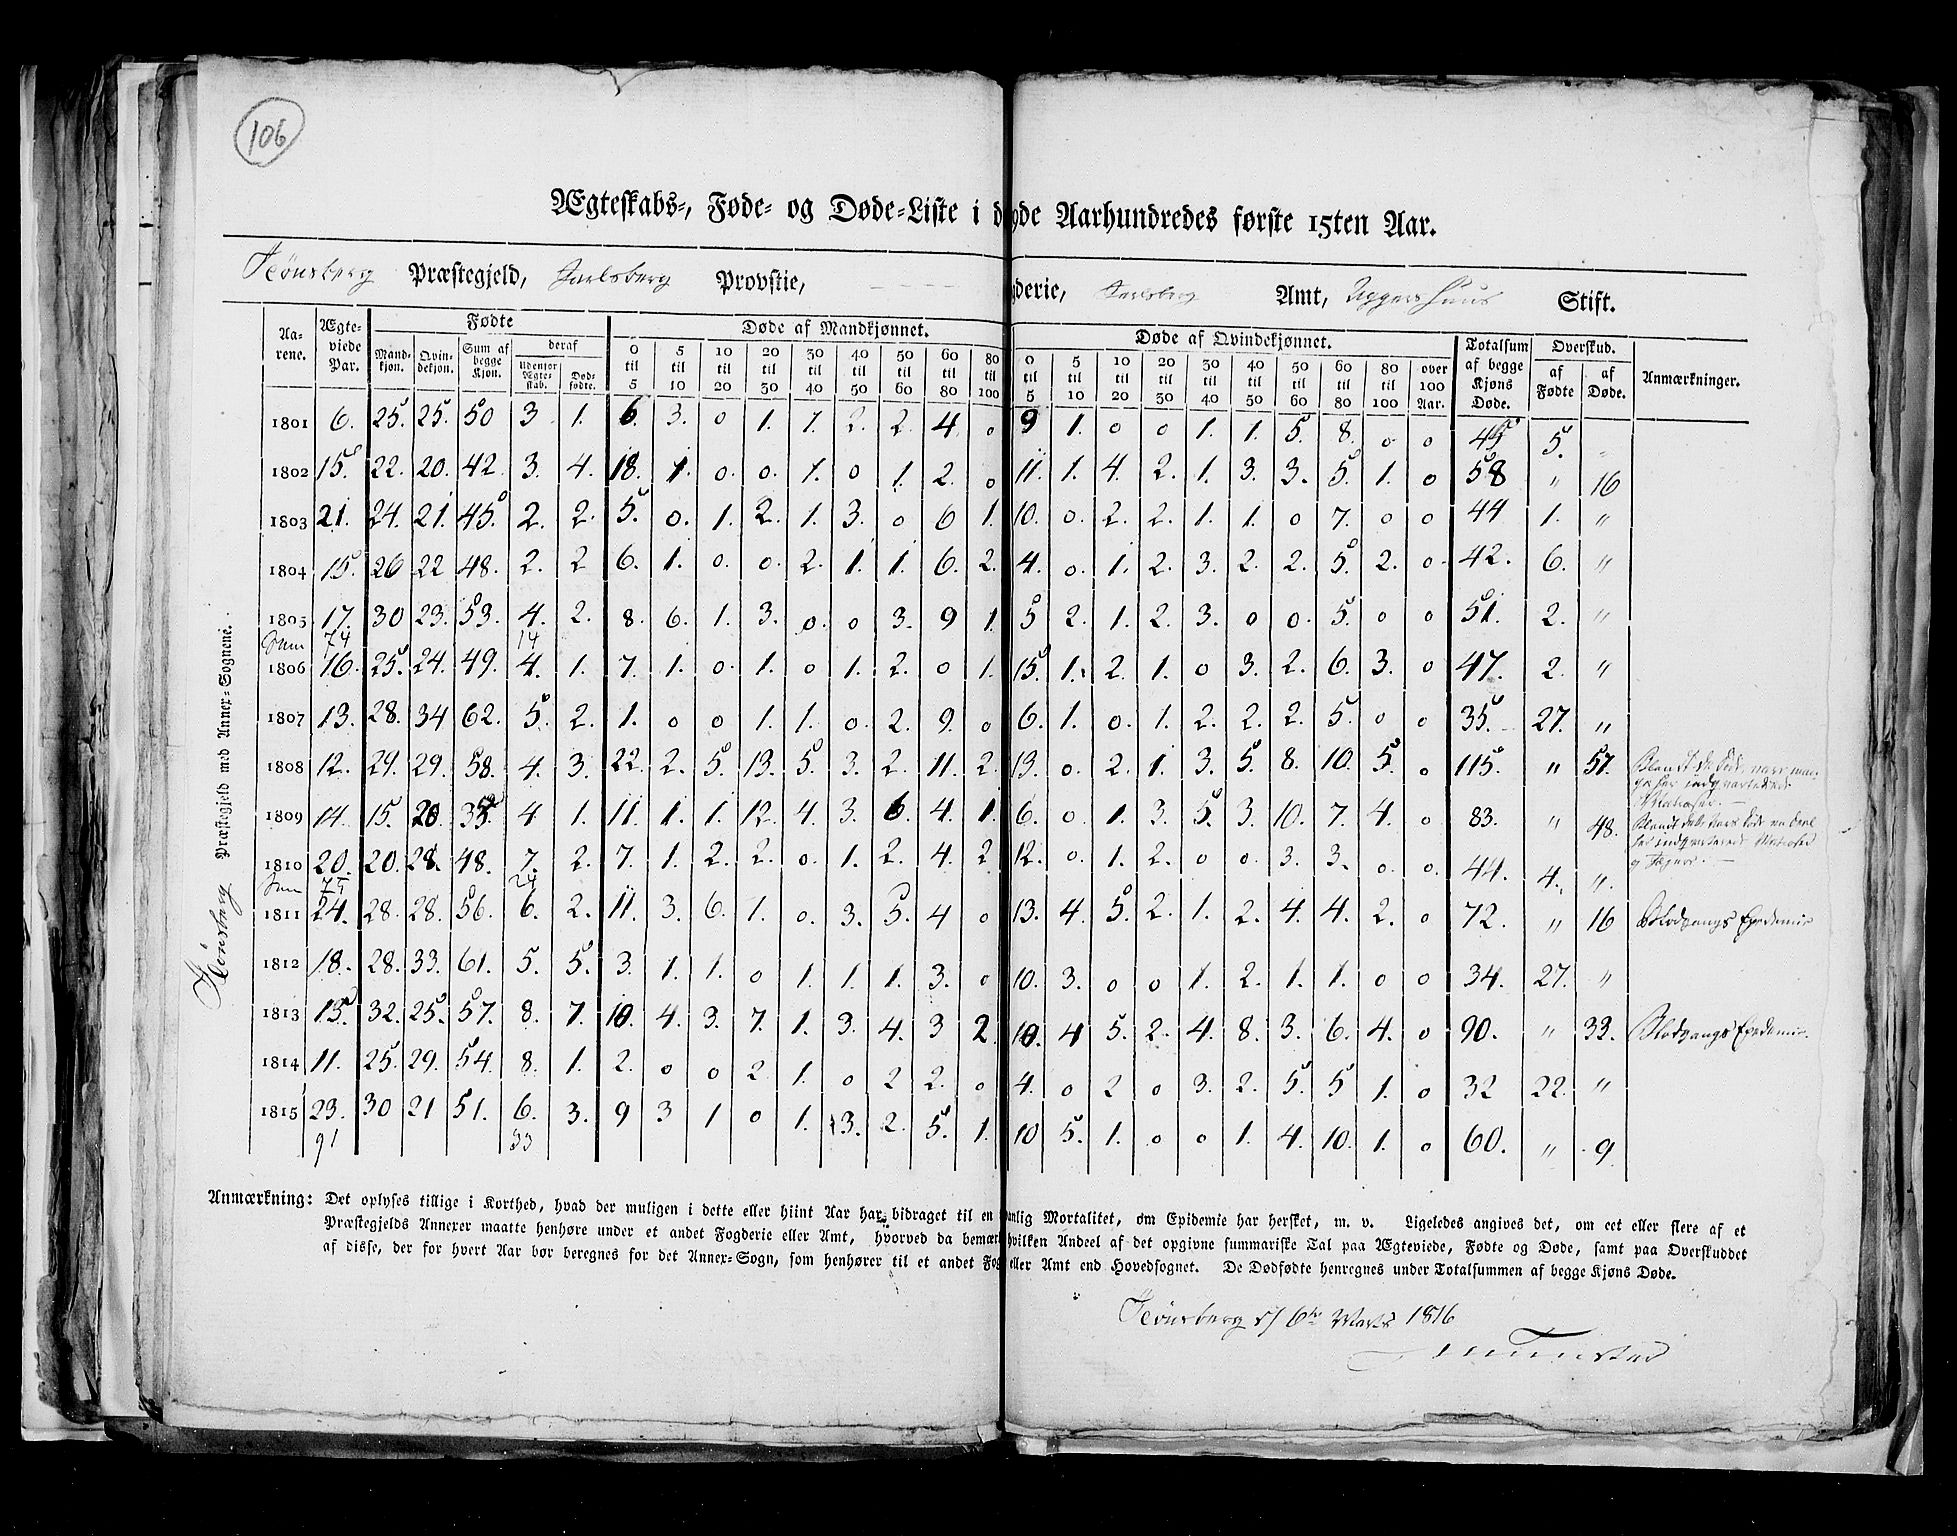 106
Ægteskabs-, Føde- og Døde-Liste i d   yde Aarhundredes første 15ten Aar.
Tönsberg Præstegjeld, Jarlsberg Provstie, derie, Jarlsberg Amt, Aggershuus Stift.
Tönsberg Præstegjeld med Annex-Sognene.
Aarene. Ægteviede Par. Fødte Mandkjøn. Qvindekjøn. Sum af begge Kjøn. deraf Udenfor Ægteskab. Dødfødte. Døde af Mandkjønnet. 0 til 5 5 til 10 10 til 20 20 til 30 30 til 40 40 til 50 50 til 60 60 til 80 80 til 100 Døde af Qvindekjønnet. 0 til 5 5 til 10 10 til 20 20 til 30 30 til 40 40 til 50 50 til 60 60 til 80 80 til 100 over 100 Aar. Totalsum af begge Kjøns Døde. Overskud. af Fødte af Døde. Anmærkninger.
1801 6. 25. 25. 50 3 1. 6. 3. 0 1. 1. 2. 2. 4. 0 9 1. 0 0 1. 1. 5. 8. 0. 0 45 5. "
1802 15. 22. 20. 42. 3. 4. 18. 1. 0. 0. 1. 0 1. 2. 0 11. 1. 4. 2. 1. 3. 3. 5. 1. 0 58 " 16
1803 21. 24. 21. 45. 2. 2. 5. 0. 1. 2. 1. 3. 0 6 1. 10. 0. 2. 2. 1. 1. 0 7. 0 0 44 1. "
1804 15. 26 22 48. 2. 2 6. 1. 0. 0. 2. 1. 1. 6. 2. 4. 0. 1. 2. 3. 2. 2. 5. 2. 0. 42. 6. "
1805 17. 30 23. 53. 4. 2. 8. 6. 1. 3. 0. 0 3. 9 1. 5 2. 1. 2. 3. 0 0. 5. 0 0 51. 2. "
Sum 74 14
1806 16. 25. 24. 49. 4. 1. 7. 1. 0. 1. 0 1. 2. 0 1. 15. 1. 2. 1. 0 3. 2. 6. 3. 0 47. 2. "
1807 13. 28. 34 62. 5. 2. 1. 0 0 1. 1. 0. 2. 9. 0 6. 1. 0. 1. 2. 2. 2. 5. 0 0 35. 27. "
1808 12. 29. 29. 58. 4. 3. 22. 2. 5. 13. 5. 3. 2. 11. 2. 13. 0. 2. 1. 3. 5. 8. 10. 5. 0 115. " 57. Blandt de döde
1809 14. 15. 20 35. 4 1. 11. 1. 1. 12. 4. 3. 6. 4. 1. 6. 0. 1. 3. 5. 3. 10. 7. 4. 0 83. " 48.
1810 20. 20. 28. 48. 7. 2. 7. 1. 2. 2. 0. 1. 2. 4. 2. 12. 0. 1. 2. 0 0. 3. 3. 0 0. 44. 4. "
Sum 75 24
1811 24. 28. 28. 56. 6. 2. 11. 3. 6. 1. 0 3. 5. 4 0 13. 4 5. 2. 1. 2. 4. 4. 2. 0 72. " 16 Blodgangs Epedemie
1812 18. 28. 33. 61. 5. 5. 3. 1. 1. 0 1. 1. 1. 3. 0 10. 3. 0 0 1. 2. 1. 1. 0 0 34. 27. "
1813 15. 32. 25. 57. 8. 7. 10. 4. 3. 7. 1. 3. 4. 3 2. 10. 4 5. 2. 4. 8. 3. 6. 4. 0 90. " 33. Blodgangs Epedemie.
1814 11. 25. 29. 54. 8. 1. 2. 0 0 2 1. 0 2 2. 0 4. 0 2 0 3. 2. 5. 5 1. 0 32 22. "
1815 23. 30 21 51. 6. 3. 9 3 1 0 1. 3. 2. 5. 1. 10 5. 1. 0 0 1. 4. 10. 1. 0 60. " 9.
91 33
Anmærkning: Det oplyses tillige i Korthed, hvad der muligen i dette eller hiint Aar har bidraget til en   anlig Mortalitet, om Epidemie har hersket, m. v. Ligeledes angives det, om eet eller flere af et
Præstegjelds Annexer maatte henhøre under et andet Fogderie eller Amt, hvorved da bemær   hvilken Andeel af det opgivne summariske Tal paa Ægteviede, Fødte og Døde, samt paa Overskuddet
af disse, der for hvert Aar bør beregnes for det Annex-Sogn, som henhører til et andet Fog   eller Amt end Hovedsognet. De Dødfødte henregnes under Totalsummen af begge Kjøns Døde.
Tönsberg d/ 6te Marts 1816